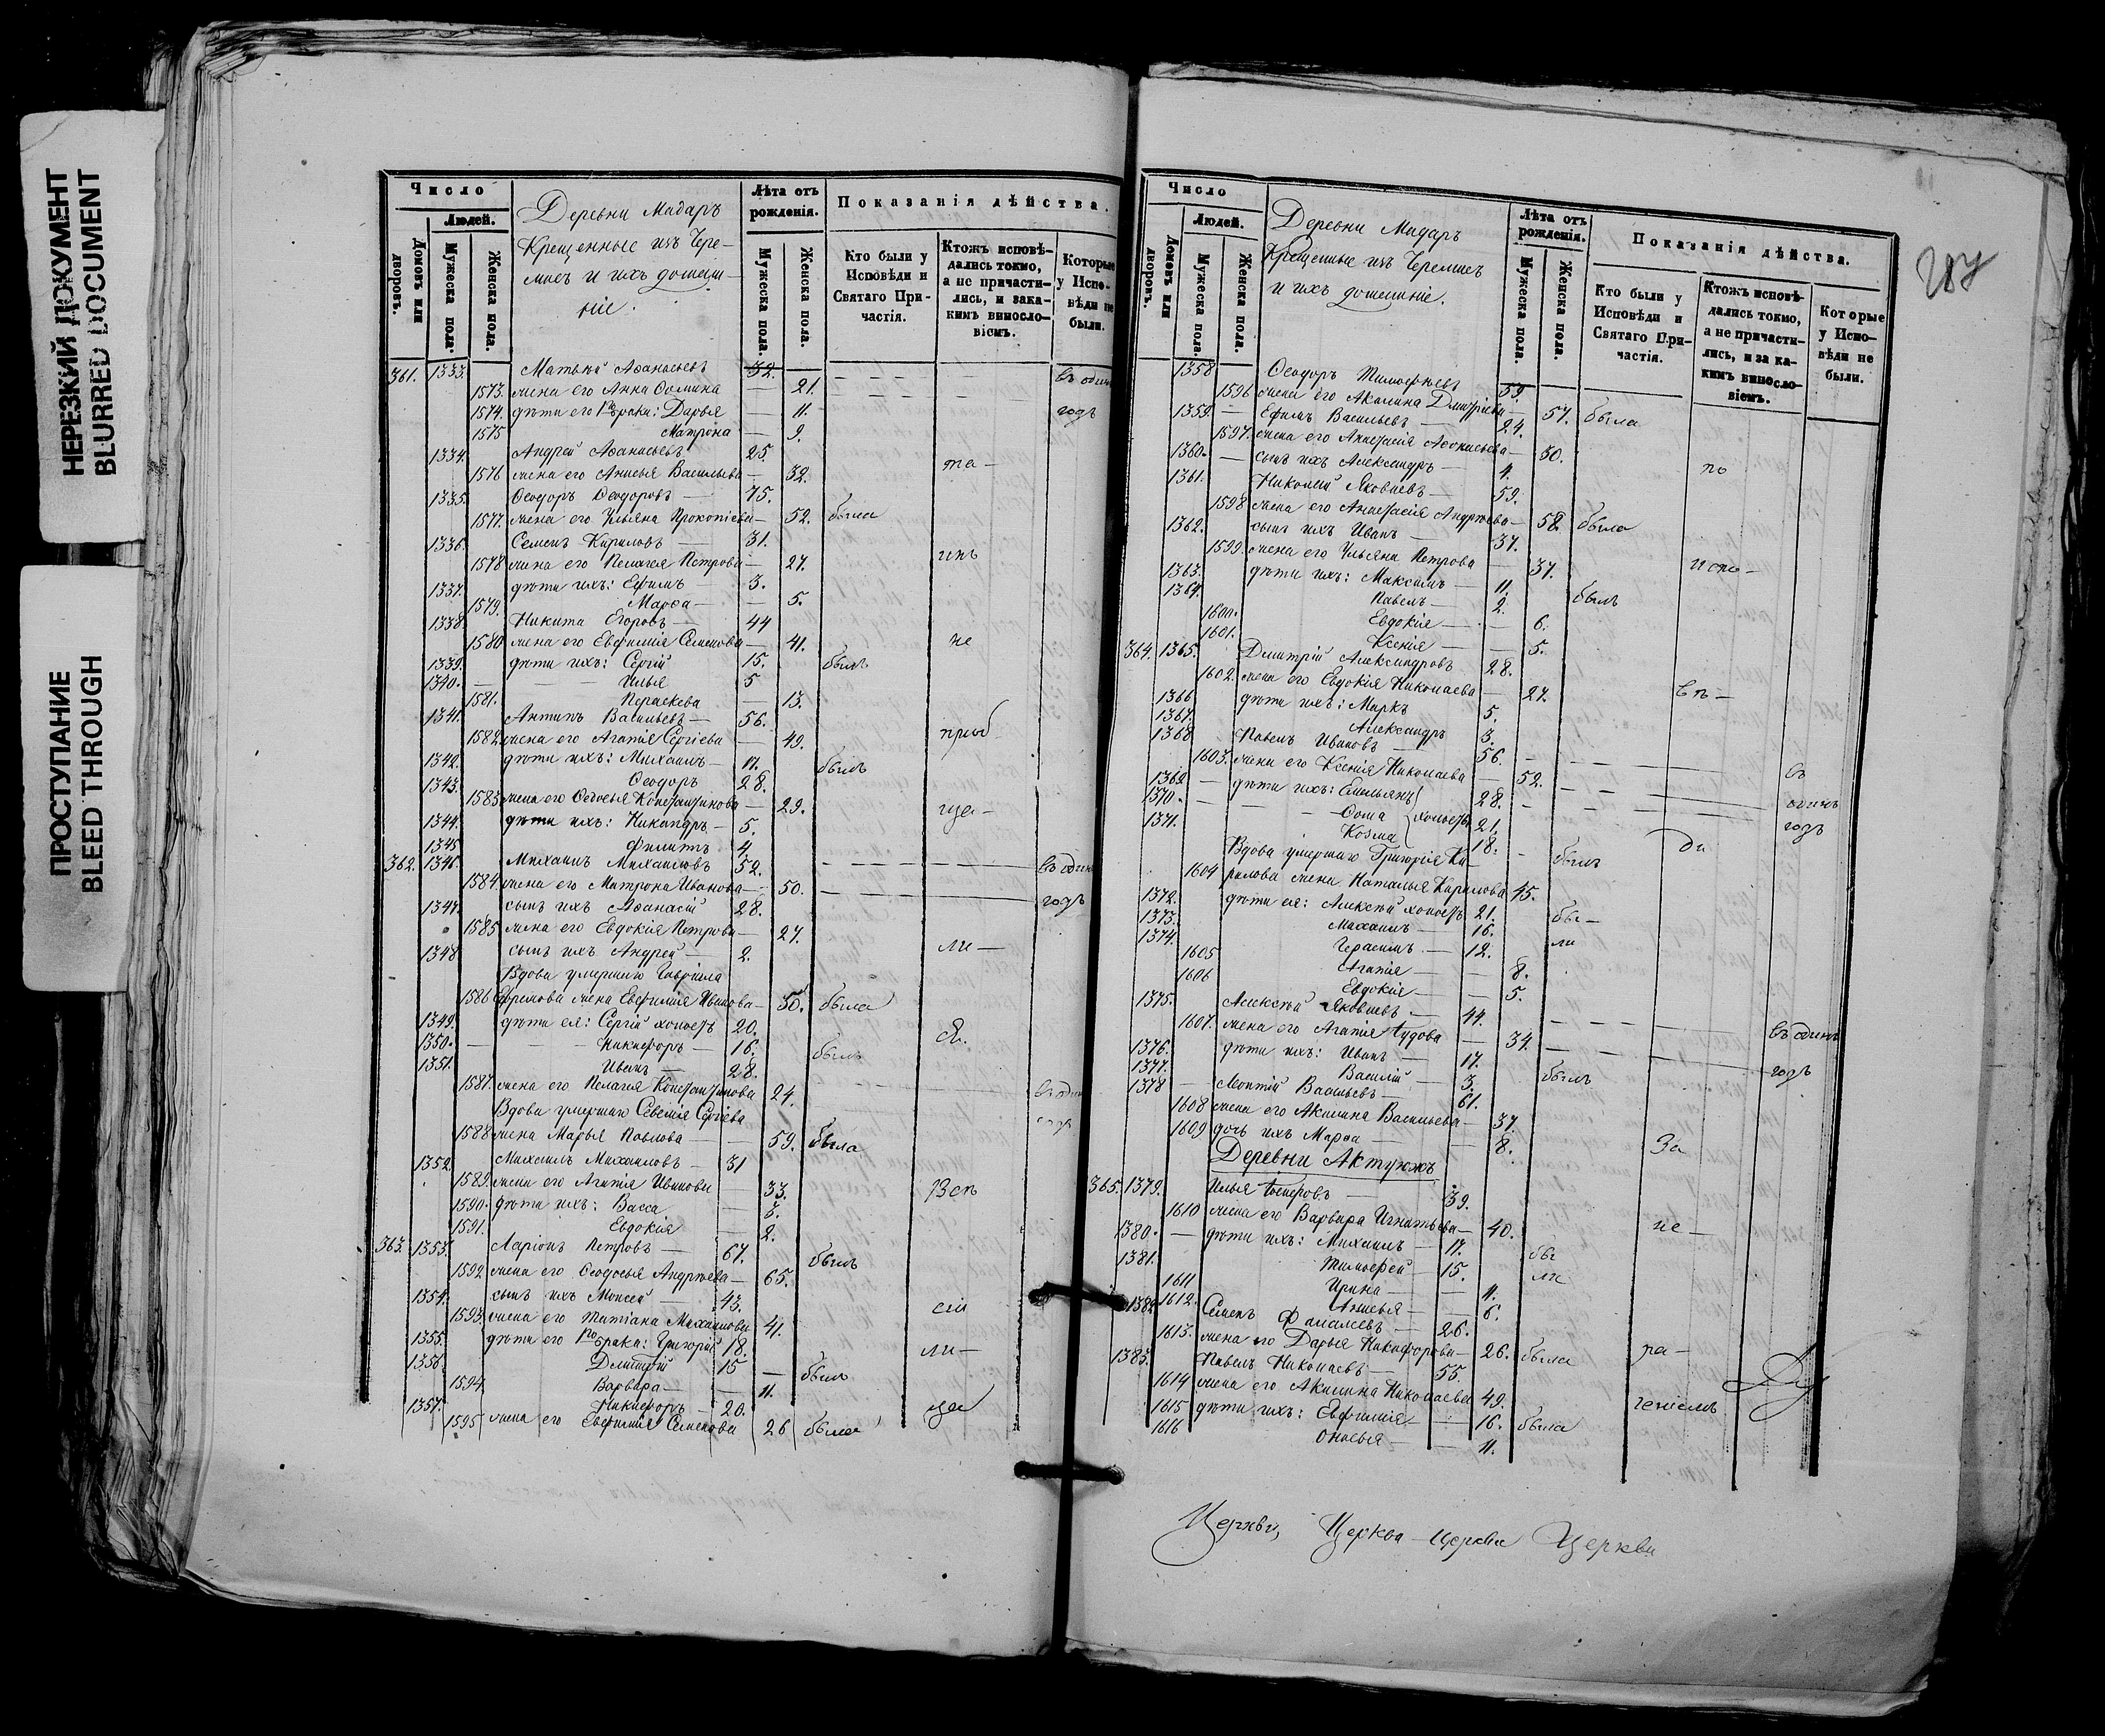 НЕРЕЗКИЙ ДОКУМЕНТ
BLURRED DOCUMENT
ПРОСТУПАНИЕ
BLEED THROUGH
Число
Людей.
Домовъ или дворовъ.
Мужеска пола.
Женска пола.
Деревни Мадаръ
Крещенные изъ Чере-
мисъ и ихъ домаш-
ніе.
Лѣта отъ рожденія.
Мужеска пола.
Женска пола.
Показанія дѣйства.
Кто были у Исповѣди и Святаго При-частія.
Ктожъ исповѣ-дались токмо, а не причасти-лись, и зака-кимъ винословіемъ.
Которые у Испо-вѣди не были.
361. 1333. Матвѣй Аѳанасьевъ 32. въ один
1573. жена его Анна Ѳомина — 21.
1574. дѣти его 1го брака: Дарья — 11. годъ
1575 Матрона — 9.
1334. Андрей Аѳанасьевъ 25.
1576 жена его Анисья Васильева — 32. та-
1335. Ѳеодоръ Ѳеодоровъ — 75.
1577. жена его Ульяна Прокопіева — 52. была
1336. Семенъ Кириловъ — 31.
1578 жена его Пелагея Петрова — 27. инъ
1337. дѣти ихъ: Ефимъ 3.
1579. Марѳа — 5.
1338. Никита Егоровъ — 44
1580 жена его Евфимія Семенова — 41. не
1339. дѣти ихъ: Сергій 15. былъ
1340. — Илья 5
1581. Параскева — 13.
1341. Антипъ Васильевъ — 56.
1582. жена его Агапія Сергіева — 49.
1342. дѣти ихъ: Михаилъ — 17. былъ
1343. Ѳеодоръ 28.
1583 жена его Ѳедосья Константинова — 29. ща-
1344. дѣти ихъ: Никандръ — 5.
1345 Филиппъ 4.
362. 1346. Михаилъ Михайловъ 52. въ один
1584. жена его Матрона Иванова — 50. годъ
1347. сынъ ихъ Аѳанасій 28.
1585 жена его Евдокія Петрова — 27.
1348 сынъ ихъ Андрей — 2. ли-
Вдова умершаго Гавріила
1586 Ефремова жена Евфимія Иванова — 50. была
1349. дѣти ея: Сергій холостъ 20.
1350. — Никифоръ — 16. былъ
1351. Иванъ — 28.
1587. жена его Пелагія Константинова 24.
Вдова умершаго Сергіева
1588 жена Марья Павлова — 59. была
1352. Михаилъ Михайловъ — 31
1589. жена его Агапія Иванова — 33.
1590. дѣти ихъ: Васса — 3.
1591. Евдокія — 2.
363. 1353. Ларіонъ Петровъ — 67. былъ
1592 жена его Ѳеодосья Андреева — 65.
1354. сынъ ихъ Моисей — 43.
1593. жена его Татіана Михайлова 41.
1355. дѣти его 1го брака: Григорій 18. ли-
1356. Дмитрій 15 былъ
1594. Варвара — 11.
1357. Никифоръ — 20.
1595 жена его Евфимія Семенова 26 была
287
Число
Людей.
Домовъ или дворовъ.
Мужеска пола.
Женска пола.
Деревни Мадаръ
Крещенные изъ Черемисъ
и ихъ домашніе.
Лѣта отъ рожденія.
Мужеска пола.
Женска пола.
Показанія дѣйства.
Кто были у Исповѣди и Святаго При-частія.
Ктожъ исповѣ-дались токмо, а не причасти-лись, и за ка-кимъ винословіемъ.
Которые у Испо-вѣди не были.
1358 Ѳеодоръ Тимофеевъ 59.
1596 жена его Акилина Дмитріева — 57. была
1359. — Ефимъ Васильевъ — 24.
1597. жена его Анастасія Аѳанасьева — 30.
1360. — сынъ ихъ Александръ — 4. по
1361. Николай Яковлевъ — 59.
1598 жена его Анастасія Андреева — 58. была
1362. сынъ ихъ Иванъ — 37.
1599. жена его Ульяна Петрова — 37.
1363. дѣти ихъ: Максимъ — 11. былъ
1364. Павелъ — 2.
1600. Евдокія — 6.
1601. Ксенія — 5.
364. 1365. Дмитрій Александровъ 28.
1602. жена его Евдокія Николаева — 27.
1366 дѣти ихъ: Маркъ 5.
1367. Александръ 3.
1368 Павелъ Ивановъ — 56. въ
1603. жена его Ксенія Николаева — 52.
1369 — дѣти ихъ: Емельянъ 28. одинъ
1370. — Ѳома холосты 21. годъ
1371. Козма 18. былъ
Вдова умершаго Григорія Ки-
1604 рилова жена Наталья Кирилова 45.
1372. дѣти ея: Алексѣй холостъ 21. бы-
1373. Михаилъ — 16. ли
1374. Герасимъ — 12.
1605 Агапія — 8.
1606 Евдокія — 5.
1375. Алексѣй Яковлевъ — 44. въ одинъ
1607. жена его Агапія — 34.
1376. дѣти ихъ: Иванъ — 17. былъ годъ
1377. Василій — 3.
1378 — Васильевъ — 61.
1608 жена его Акилина Васильева — 37.
1609 дочь ихъ Марѳа — 8. За
Деревни Актужъ
365. 1379. Илья 39.
1610 жена его Варвара Игнатьева — 40. не-
1380. — дѣти ихъ: Михаилъ — 17. бы
1381. Тимофей — 15. ли
1611 Ирина — 11.
1612. Анисья — 6.
1382 Семенъ 26.
1613. жена его Дарья Никифорова — 26. была ра-
1383. Павелъ Николаевъ — 55.
1614 жена его Акилина Николаева 49. ченіемъ
1615 дѣти ихъ: Евфимія — 16. была
1616 11.
Церкви, Церква Церкви Церкви